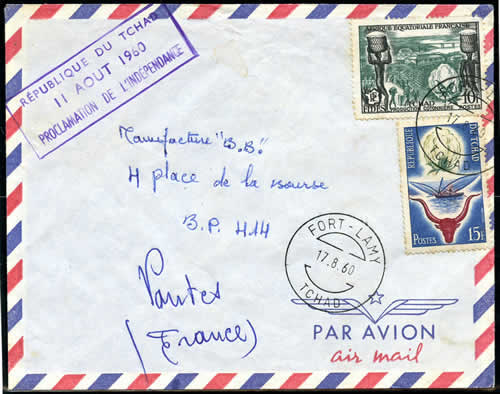 RÉPUBLIQUE DU TCHAD
11 AOUT 1960
PROCLAMATION DE L'INDÉPENDANCE
AFRIQUE EQUATORIALE FRANÇAISE
FIDES
TCHAD
COTONNIERE
10F
POSTES
TCHAD
REPUBLIQUE DU TCHAD
POSTES
15F
Manufacture "B.B."
4 place de la bourse
B.P. 414
Nantes
(France)
FORT-LAMY
17.8.60
TCHAD
PAR AVION
air mail